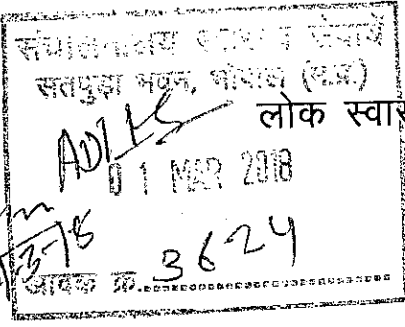 संचालनालय स्वास्थ्य सेवायें
सतपुड़ा भवन, भोपाल (म.प्र.)
लोक स्वा
01 MAR 2018
आवक क्र. 3624